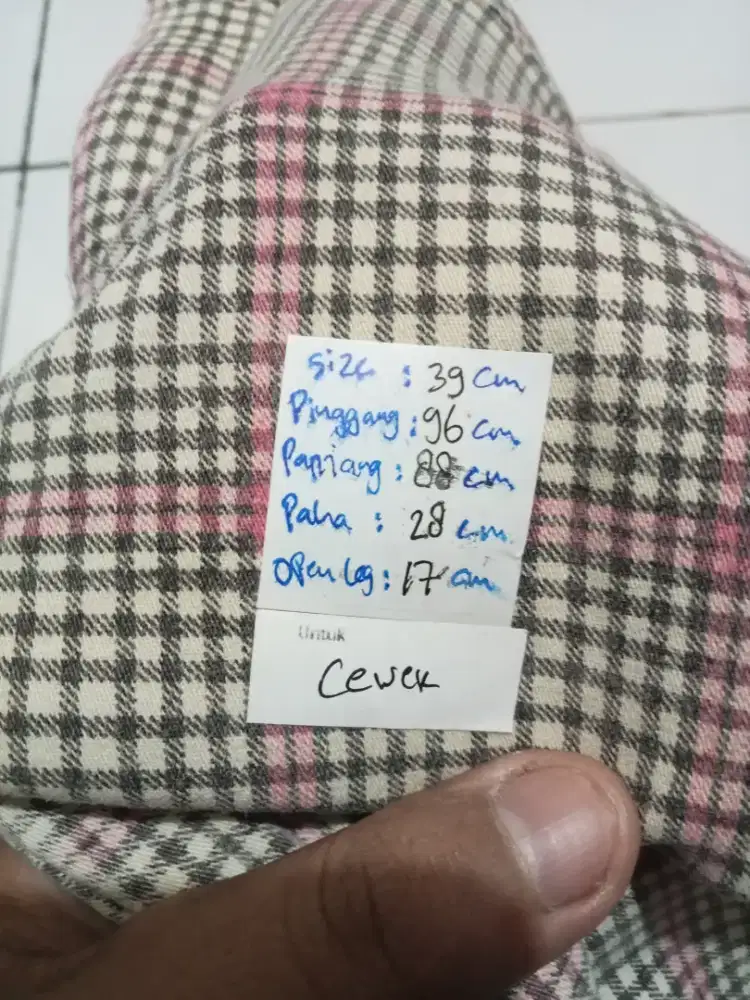 Size : 39 cm
Pinggang : 96 cm
Panjang : 88 cm
Paha : 28 cm
Open leg : 17 cm
Untuk
Cewek